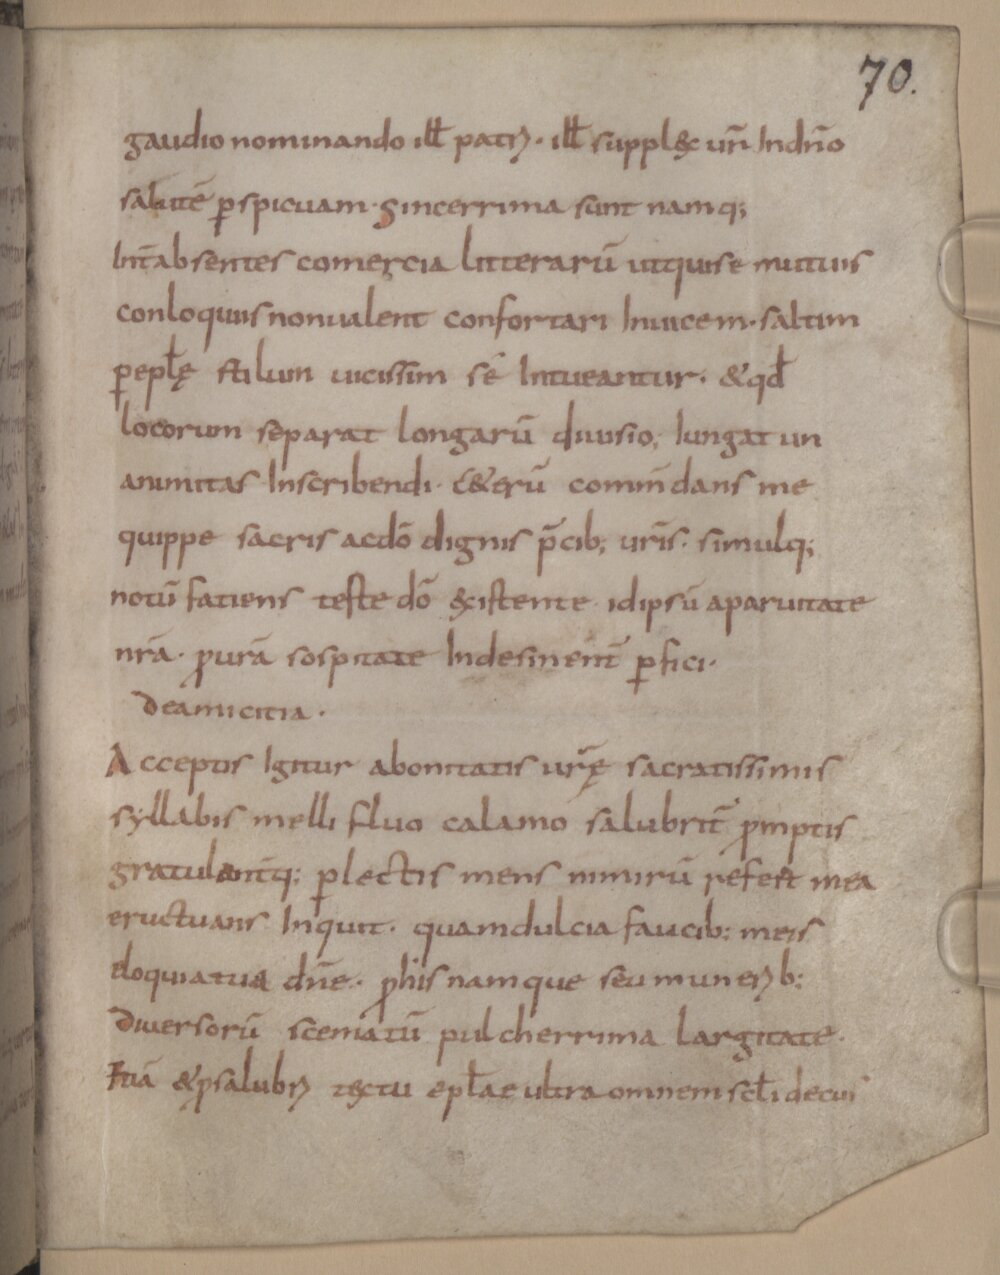 70.
gaudio nominando ill̄ patrꝫ · ill̄ suppl&x ur̄ Indn̄o
salutē ꝑspicuam · Sincerrima sunt namq;
Int̄ absentes comercia litterarū utqui se mutuis
conloquiis nonualent confortari Inuicem · saltim
ꝑepl̄ę stilum uicissim sé Intueantur · &qd̄
locorum separat longarū diuisio; Iungat un
animitas Inscribendi · C&erū comm̄dans me
quippe sacris acdō dignis p̄cib; ur̄is · simulq;
notū fatiens teste dō &xistente idipsū aparuitate
nr̄a · ꝓ urā sospitate Indesinent̄ ꝑfici ·
Deamicitia ·
Acceptis Igitur abonitatis ur̄ę sacratissimis
syllabis melli fluo calamo salubrit̄ ꝓmptis
gratulant̄q; ꝑlectis mens nimirū refert mea
eructuans Inquit · quamdulcia faucib; meis
eloquiatua dn̄e · ꝓ his namque seu munerꝫb;
diuersorū scematū pulcherrima largitate ·
&ꝓsalubrꝫ t&xtu epl̄ae ultra omnem scl̄i decus